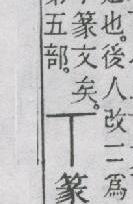 也。後人改二爲
篆文矣。
第五部。
丅篆